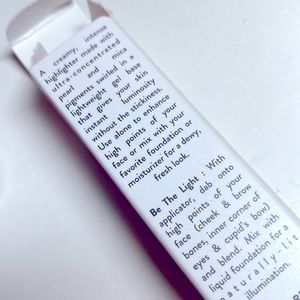 A creamy, intense
highlighter made with
ultra-concentrated
pearl and mica
pigments swirled in a
lightweight gel base
that gives your skin
instant luminosity
without the stickiness.
Use alone to enhance
high points of your
face or mix with your
favorite foundation or
moisturizer for a dewy,
fresh look.
Be The Light : With
applicator, dab onto
high points of your
face (cheek & brow
bones, inner corner of
eyes & cupid's bow)
and blend. Mix with
liquid foundation for a
illumination.